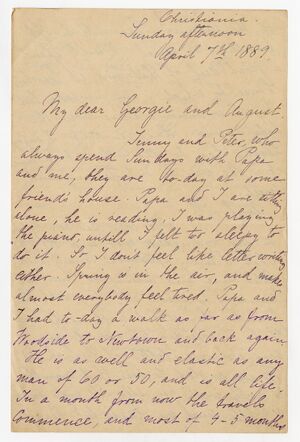 Christiania.
Sunday afternoon
April 7th 1889.
My dear Georgie and August
Jenny and Peter, who
always spend Sundays with Papa
and me, they are to-day at some
friend's house. Papa and I are sitting
alone, he is reading. I was playing
the piano, untill I felt too sleepy to
do it. So I don't feel like letter-writing
either. Spring is in the air, and makes
almost everybody feel tired. Papa and
I had to-day a walk as far as from
to Newtown and back again.
He is as well and elastic as any
man of 60 or 50, and is all life.
In a month from now the travels
commence, and most of 4-5 months